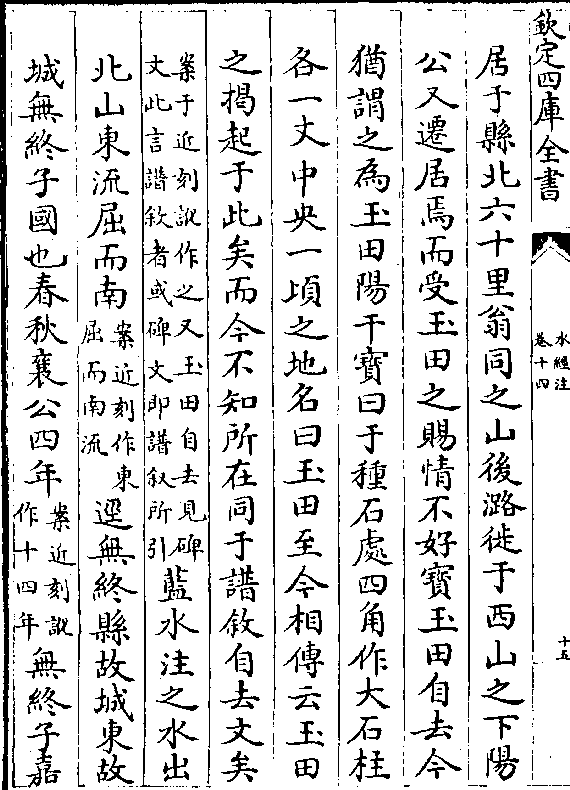 欽定四庫全書
水經注
卷十四
十五
居于縣北六十里翁同之山後潞徙于西山之下陽
公又遷居焉而受玉田之賜情不好寶玉田自去今
猶謂之為玉田陽干寶曰于種石處四角作大石柱
各一丈中央一頃之地名曰玉田至今相傳云玉田
之揭起于此矣而今不知所在同于譜敘自去文矣
案于近刻訛作之又玉田自去見碑
文此言譜敘者或碑文即譜叙所引
藍水注之水出
北山東流屈而南
案近刻作東
屈而南流
逕無終縣故城東故
城無終子國也春秋襄公四年
案近刻訛
作十四年
無終子嘉